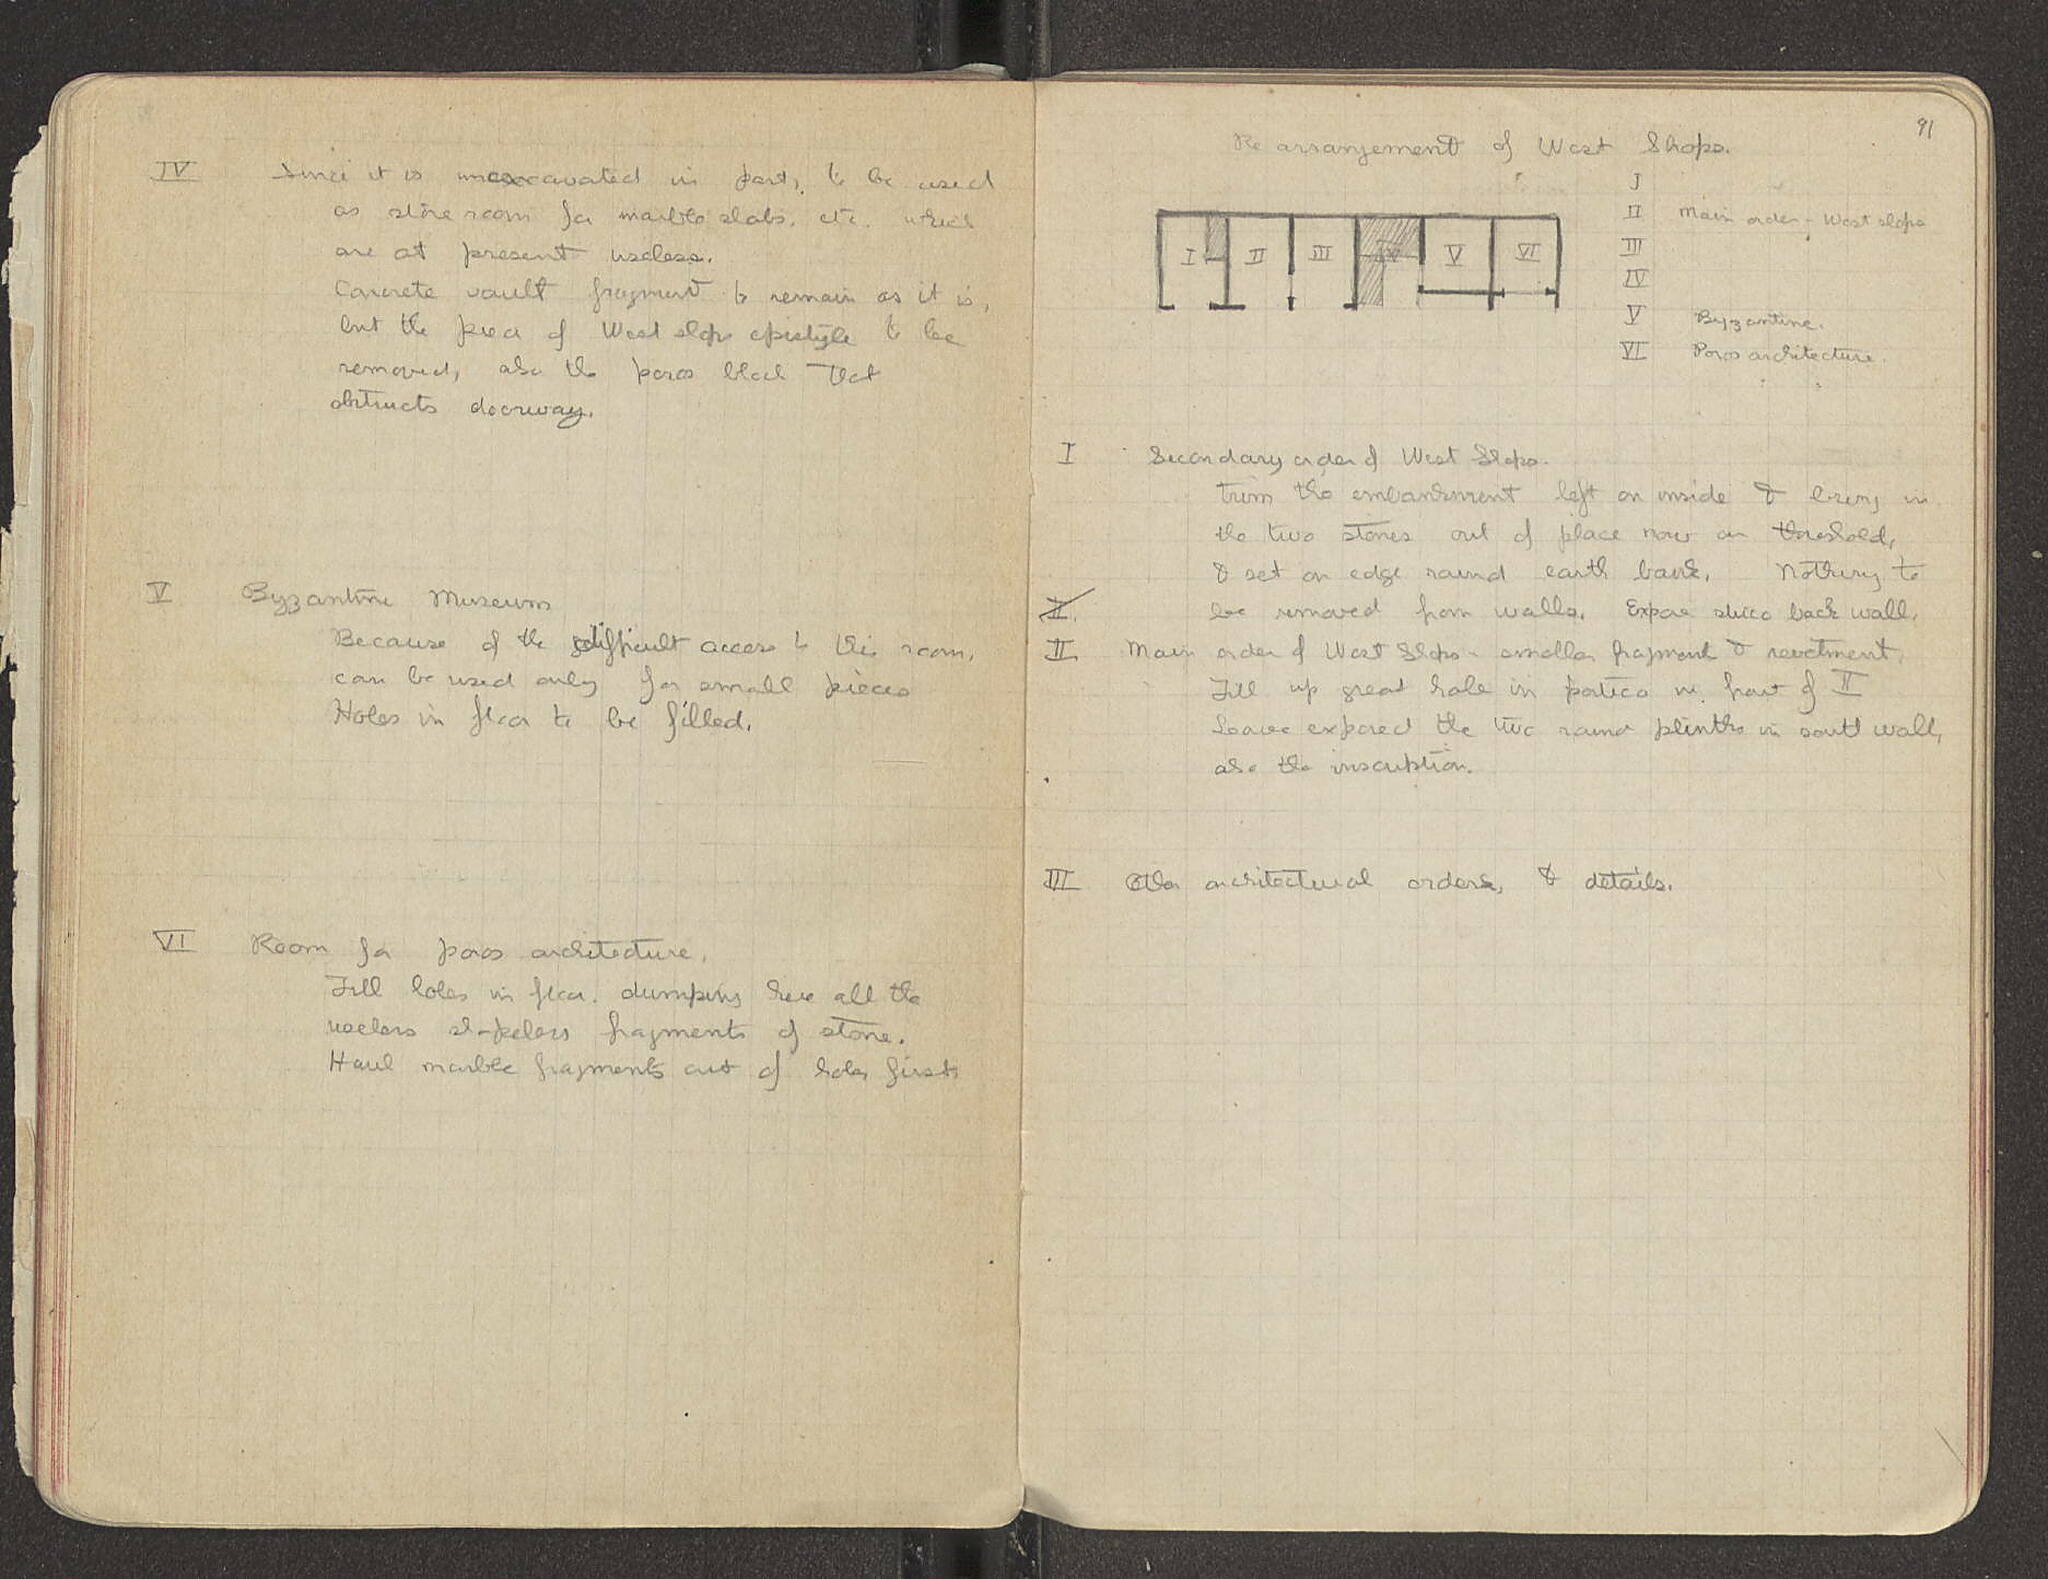 IV Since it is unexcavated in part, to be used
as store room for marble slabs. etc. which
are at present useless.
Concrete vault fragment to remain as it is,
but the piece of West shops epistyle to be
removed, also the poros block that
obstructs doorway.
V Byzantine Museum
Because of the difficult access to this room,
can be used only for small pieces
Holes in floor to be filled.
VI Room for poros architecture.
Fill holes in floor. dumping here all the
useless shapeless fragments of stone.
Haul marble fragments out of holes first.
91
Rearrangement of West Shops.
I II III IV V VI
I
II Main order, West shops
III
IV
V Byzantine.
VI Poros architecture.
I Secondary order of West Shops.
Trim the embankment left on inside & bring in
the two stones out of place now on threshold,
& set on edge round earth bank. Nothing to
II. be removed from walls. Expose stucco back wall.
II Main order of West Shops - smaller fragments & revetment.
Fill up great hole in portico in front of II
Leave exposed the two round plinths in south wall,
also the inscription.
III Other architectural orders, & details.